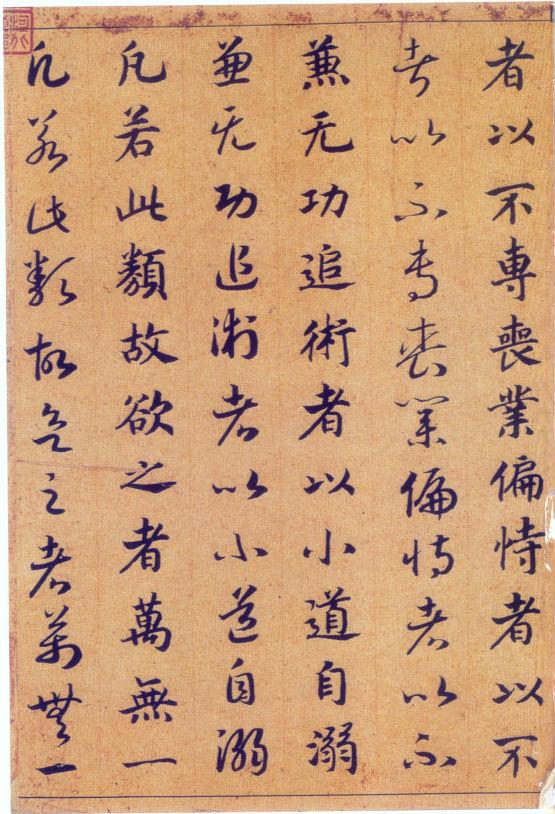 者以不專喪業偏恃者以不
者以不專喪業偏恃者以不
兼无功追術者以小道自溺
兼无功追術者以小道自溺
凡若此類故欲之者萬無一
凡若此類故欲之者萬無一